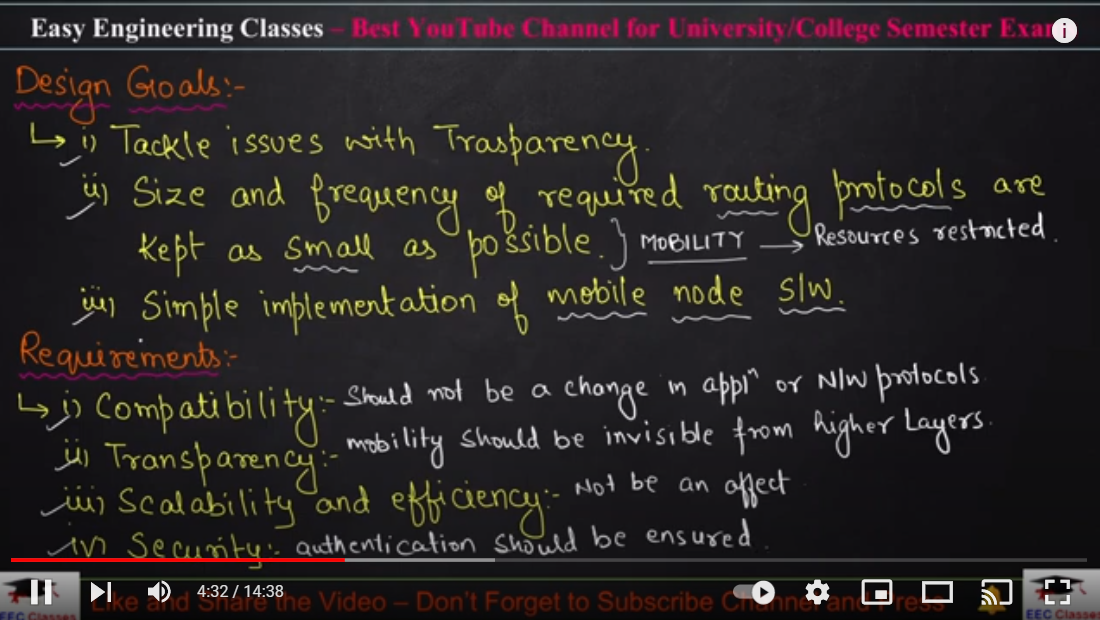 Easy Engineering Classes – Best YouTube Channel for University/College Semester Exam
Design Goals:-
↳ i) Tackle issues with Trasparency.
ii) Size and frequency of required routing protocols are
kept as small as possible. } MOBILITY → Resources restricted.
iii) Simple implementation of mobile node S/W.
Requirements:-
↳ i) Compatibility:- Should not be a change in applⁿ or N/W protocols.
ii) Transparency:- mobility should be invisible from higher Layers.
iii) Scalability and efficiency:- Not be an affect
iv) Security:- authentication should be ensured.
4:32 / 14:38
Like and Share the Video – Don't Forget to Subscribe Channel and Press
EEC Classes
EEC Classes